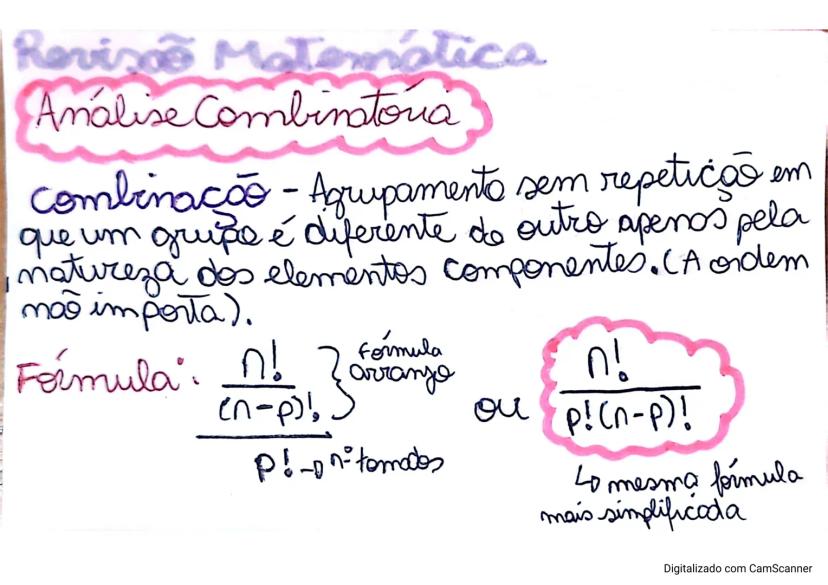 Revisão Matemática
Análise Combinatória
Combinação - Agrupamento sem repetição em
que um grupo é diferente do outro apenas pela
natureza dos elementos componentes. (A ordem
não importa).
Fórmula: n!/(n-p)! } fórmula arranjo
p! → nº tomados
ou n!/p!(n-p)!
↳ mesma fórmula
mais simplificada
Digitalizado com CamScanner